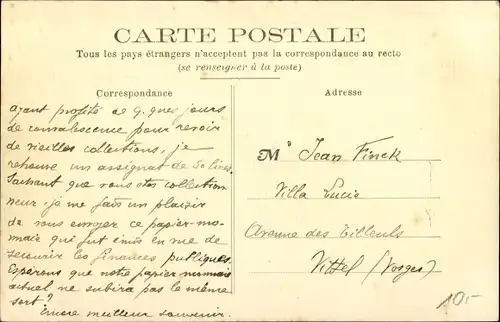 CARTE POSTALE
Tous les pays étrangers n'acceptent pas la correspondance au recto
(se renseigner à la poste)
Correspondance
Adresse
ayant profité de q. ques jours
de convalescence pour revoir
de vieilles collections, je
retrouve un assignat de 50 livres.
Sachant que vous êtes collection
neur, je me fais un plaisir
de vous envoyer ce papier-mo-
nnaie qui fut émis en vue de
secourir les finances publiques.
Espérons que notre papier monnaie
actuel ne subira pas le même
sort?
Encore meilleur souvenir.
Mr Jean Finck
Villa Lucie
Avenue des Tilleuls
Vittel (Vosges)
10.-